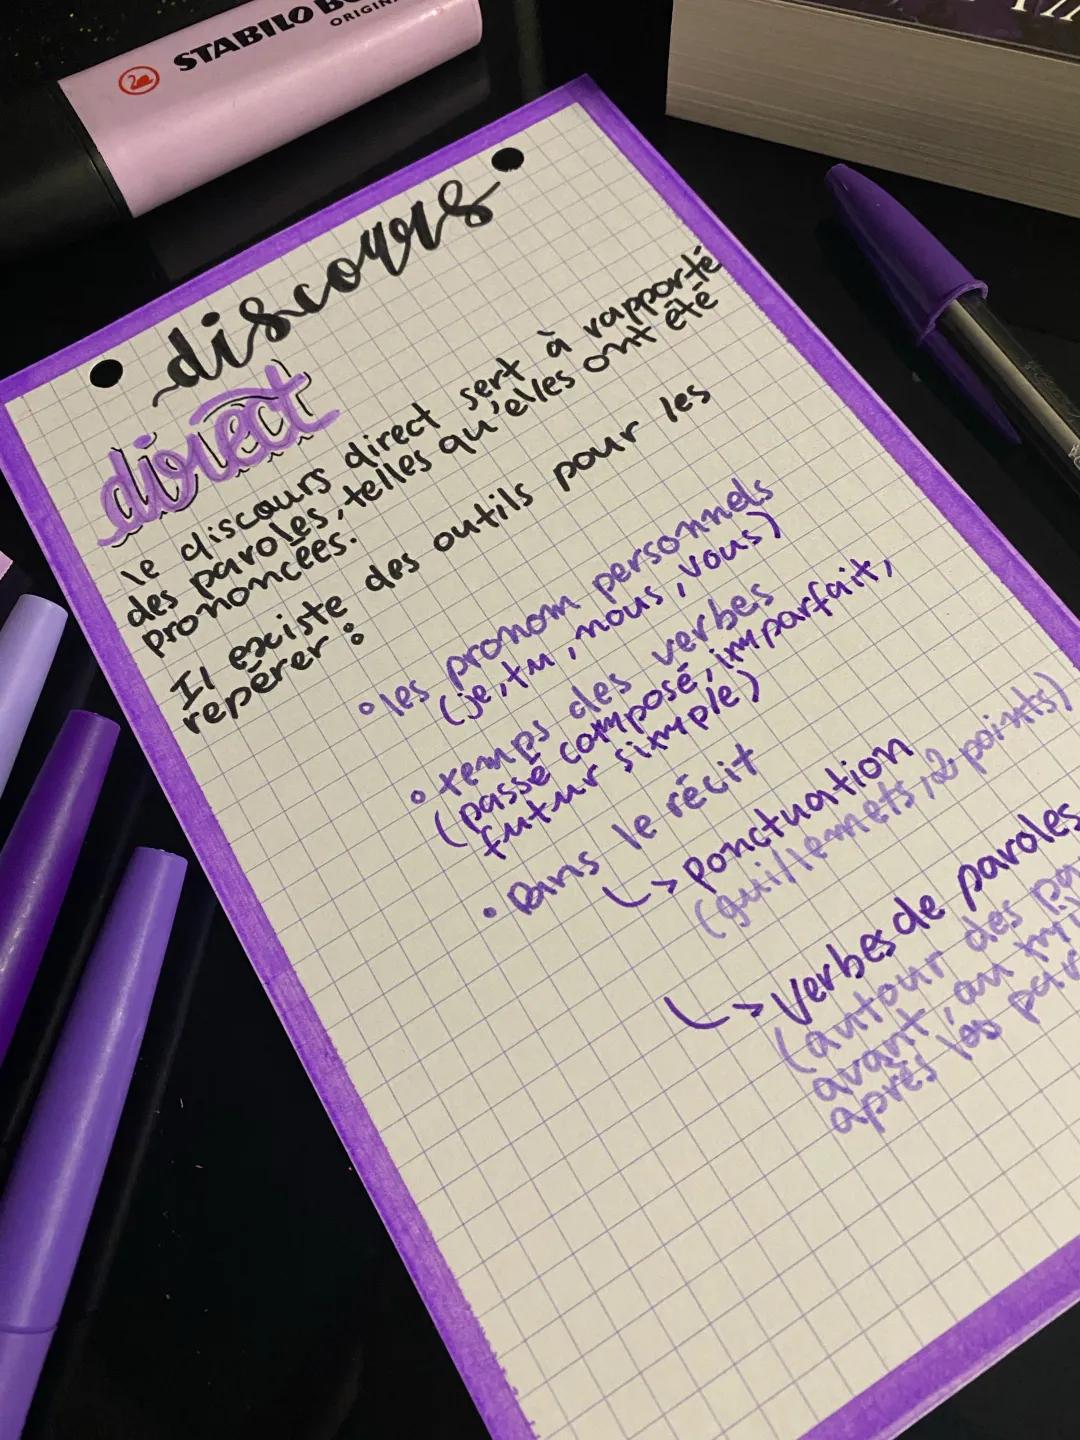 STABILO BO
ORIGINA
discours
direct
le discours direct sert à rapporté
des paroles, telles qu'elles ont été
prononcées.
Il existe des outils pour les
repérer :
• les pronom personnels
(je, tu, nous, vous)
• temps des verbes
(passé composé, imparfait,
futur simple)
• Dans le récit
↳> Ponctuation
(guillemets, 2 points)
↳> Verbes de paroles
(autour des pa
avant, au mil
après les par